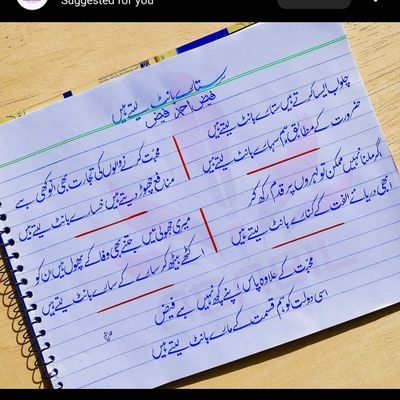 Suggested for you
ستارے بانٹ لیتے ہیں
فیض احمد فیض
چلو اب ایسا کرتے ہیں ستارے بانٹ لیتے ہیں
ضرورت کے مطابق ہم سہارے بانٹ لیتے ہیں
محبت کرنے والوں کی تجارت بھی انوکھی ہے
منافع چھوڑ دیتے ہیں خسارے بانٹ لیتے ہیں
اگر ملنا نہیں ممکن تو لہروں پر قدم رکھ کر
ابھی دریائے الفت کے کنارے بانٹ لیتے ہیں
میری جھولی میں جتنے بھی وفا کے پھول ہیں ان کو
اکٹھے بیٹھ کر سارے کے سارے بانٹ لیتے ہیں
محبت کے علاوہ پاس اپنے کچھ نہیں ہے فیض
اسی دولت کو ہم قسمت کے مارے بانٹ لیتے ہیں